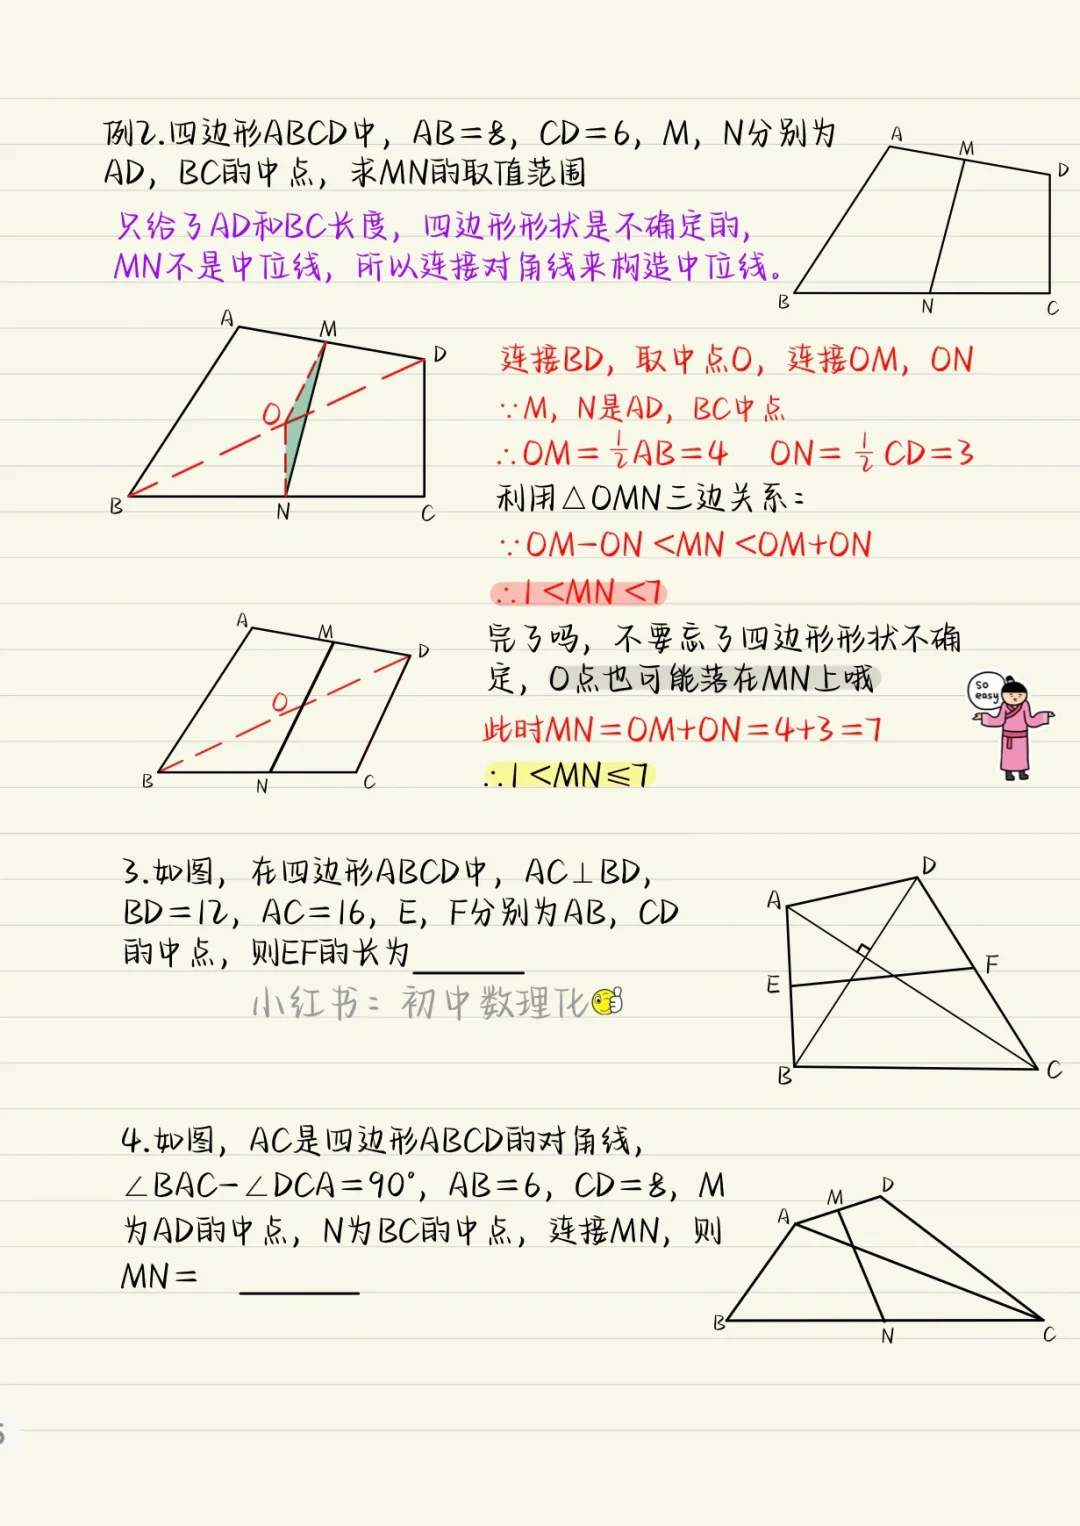 例2.四边形ABCD中，AB=8，CD=6，M，N分别为
AD，BC的中点，求MN的取值范围
A
M
D
B
N
C
只给了AD和BC长度，四边形形状是不确定的，
MN不是中位线，所以连接对角线来构造中位线。
A
M
D
O
B
N
C
连接BD，取中点O，连接OM，ON
∵M，N是AD，BC中点
∴OM=½AB=4 ON=½CD=3
利用△OMN三边关系：
∵OM-ON<MN<OM+ON
∴1<MN<7
A
M
D
O
B
N
C
完了吗，不要忘了四边形形状不确
定，O点也可能落在MN上哦
此时MN=OM+ON=4+3=7
∴1<MN≤7
so
easy
3.如图，在四边形ABCD中，AC⊥BD，
BD=12，AC=16，E，F分别为AB，CD
的中点，则EF的长为
小红书：初中数理化
D
A
F
E
B
C
4.如图，AC是四边形ABCD的对角线，
∠BAC-∠DCA=90°，AB=6，CD=8，M
为AD的中点，N为BC的中点，连接MN，则
MN=
D
M
A
B
N
C
5